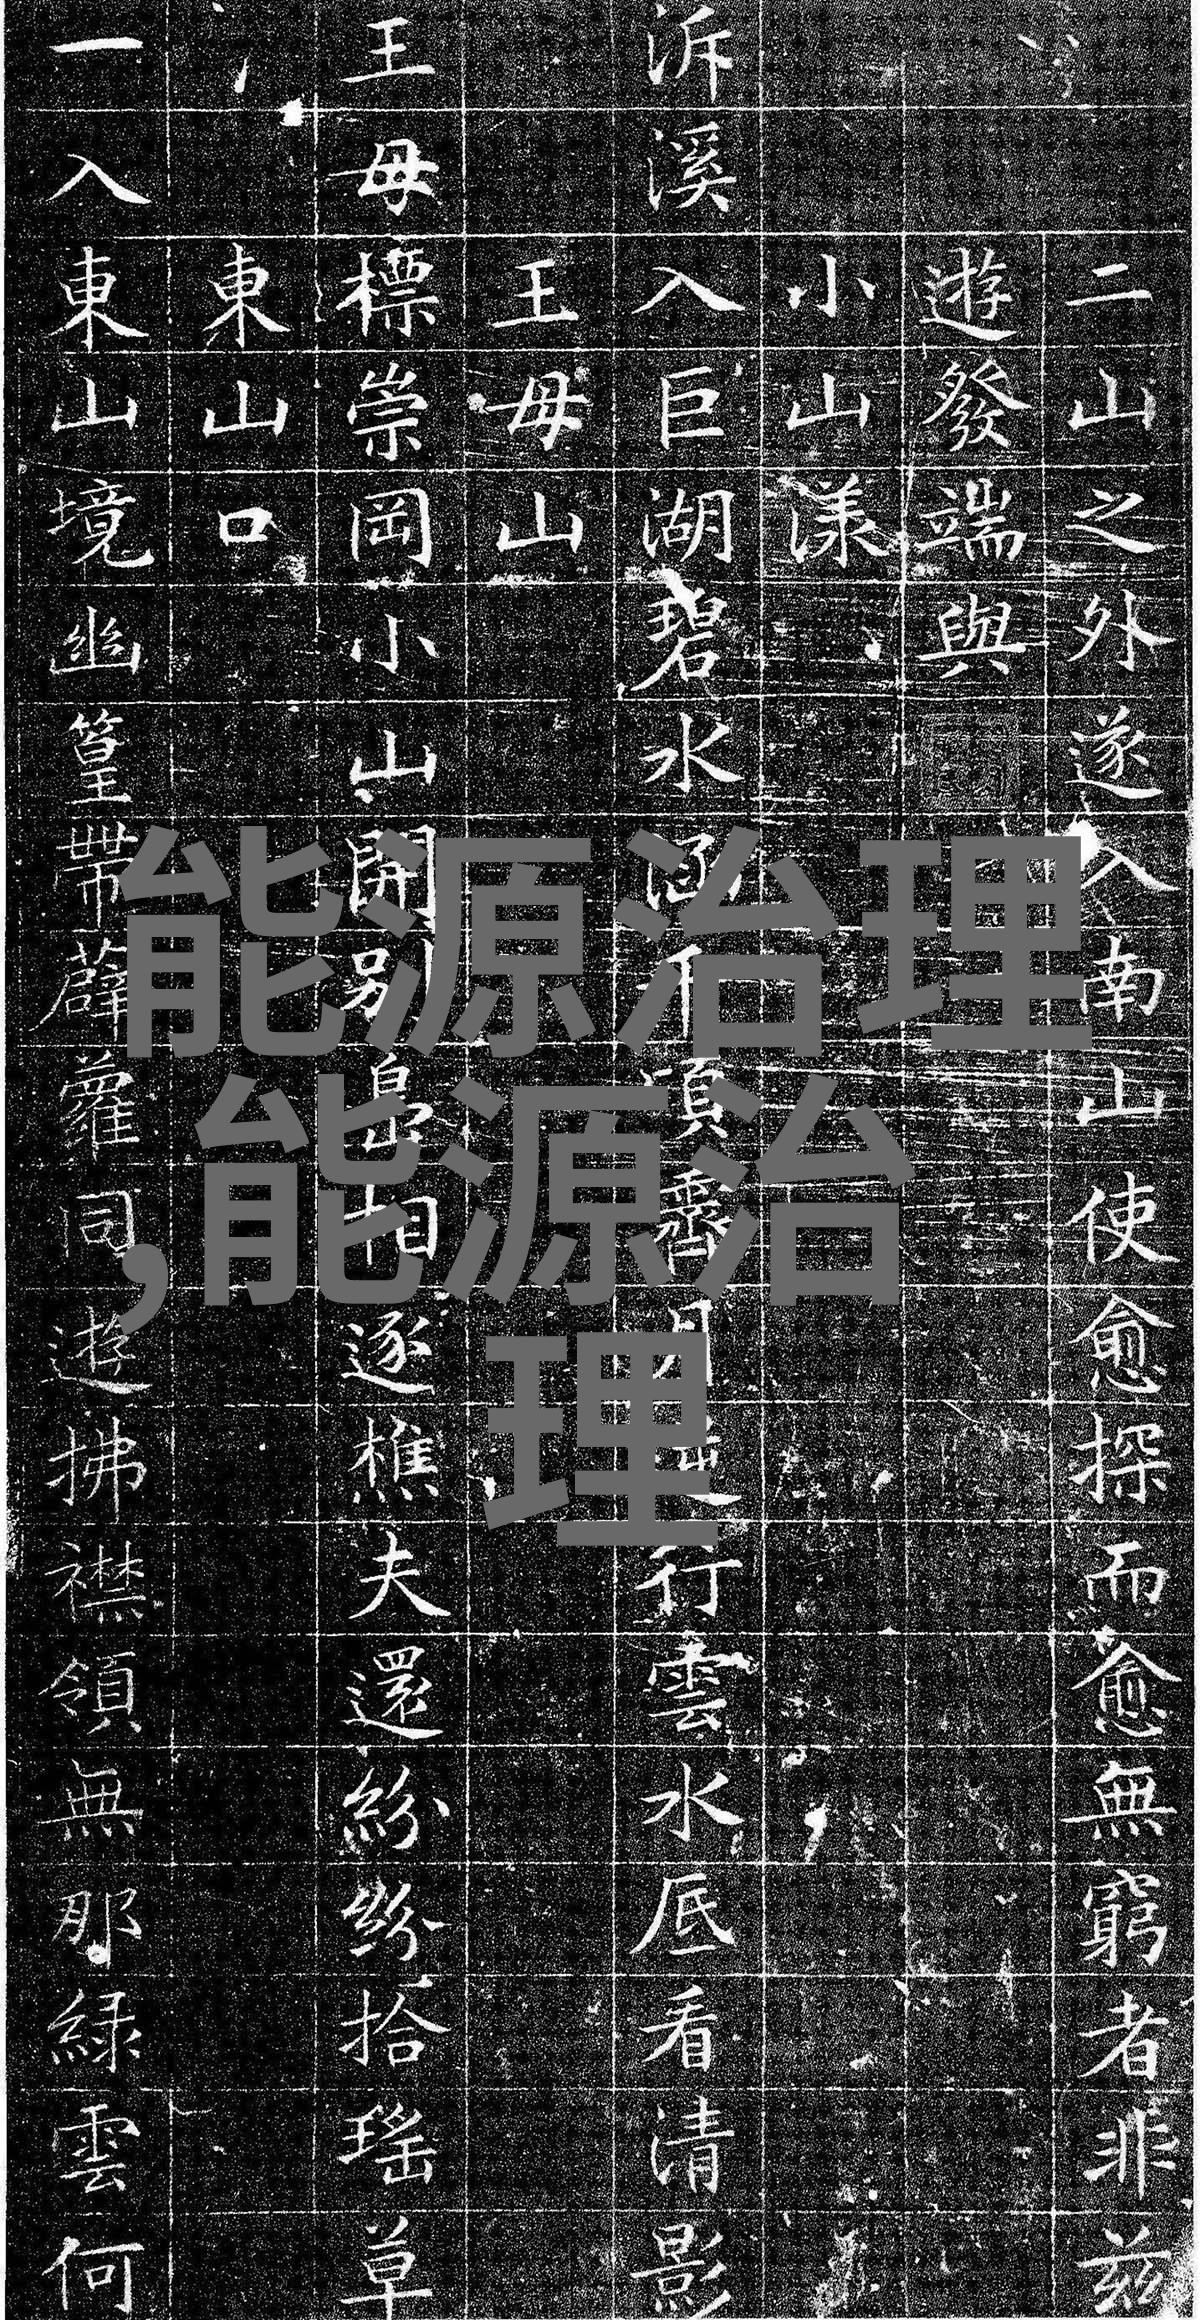 二山之外遂入南山使愈探而愈無窮者非茲
遊發端與
小山漾
泝溪入巨湖碧水涵千頃霽月行雲水底看清影
王母山
王母標崇岡小山開別島相逐樵夫還紛紛拾瑤草
東山口
一入東山境幽篁帶薜蘿同遊拂襟領無那綠雲何
能源治理
,能源治
理